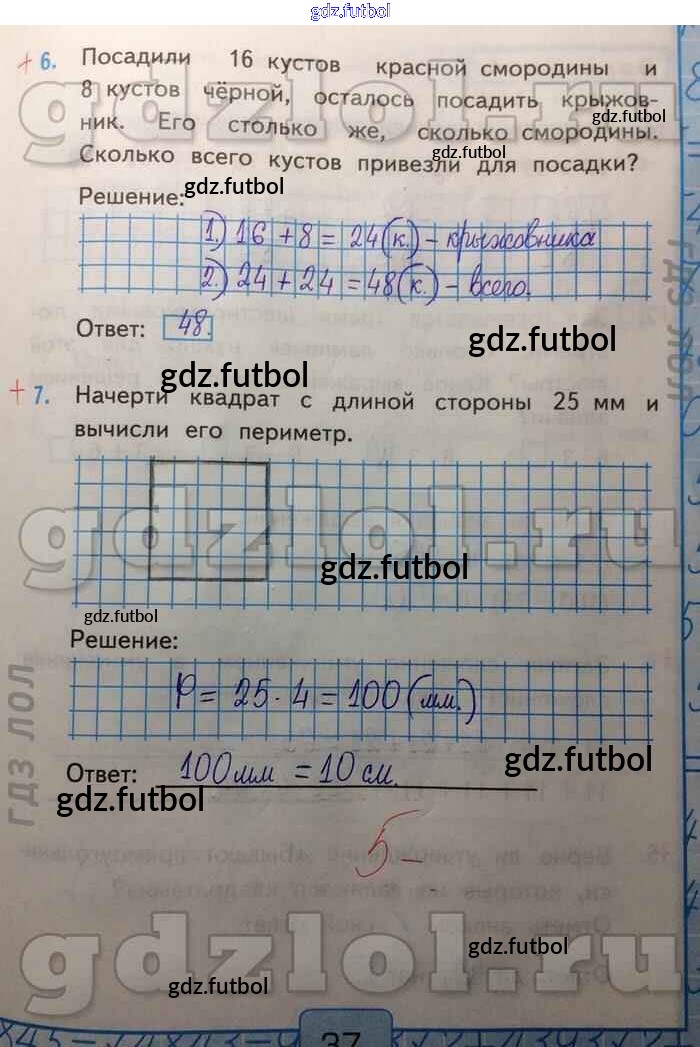 gdz.futbol
+ 6. Посадили 16 кустов красной смородины и
8 кустов чёрной, осталось посадить крыжов-
ник. Его столько же, сколько смородины.
gdz.futbol
gdz.futbol
gdzlol.ru
Сколько всего кустов привезли для посадки?
Решение:
gdz.futbol
1.) 16 + 8 = 24 (к.) - крыжовника
2.) 24 + 24 = 48 (к.) - всего.
ГДЗ ЛОЛ
Ответ: 48.
gdz.futbol
gdz.futbol
+ 7. Начерти квадрат с длиной стороны 25 мм и
вычисли его периметр.
gdzlol.ru
gdz.futbol
gdz.futbol
Решение:
P = 25 · 4 = 100 (мм.)
ГДЗ ЛОЛ
gdz.futbol
Ответ: 100 мм = 10 см.
gdz.futbol
5-
gdzlol.ru
gdz.futbol
gdz.futbol
37